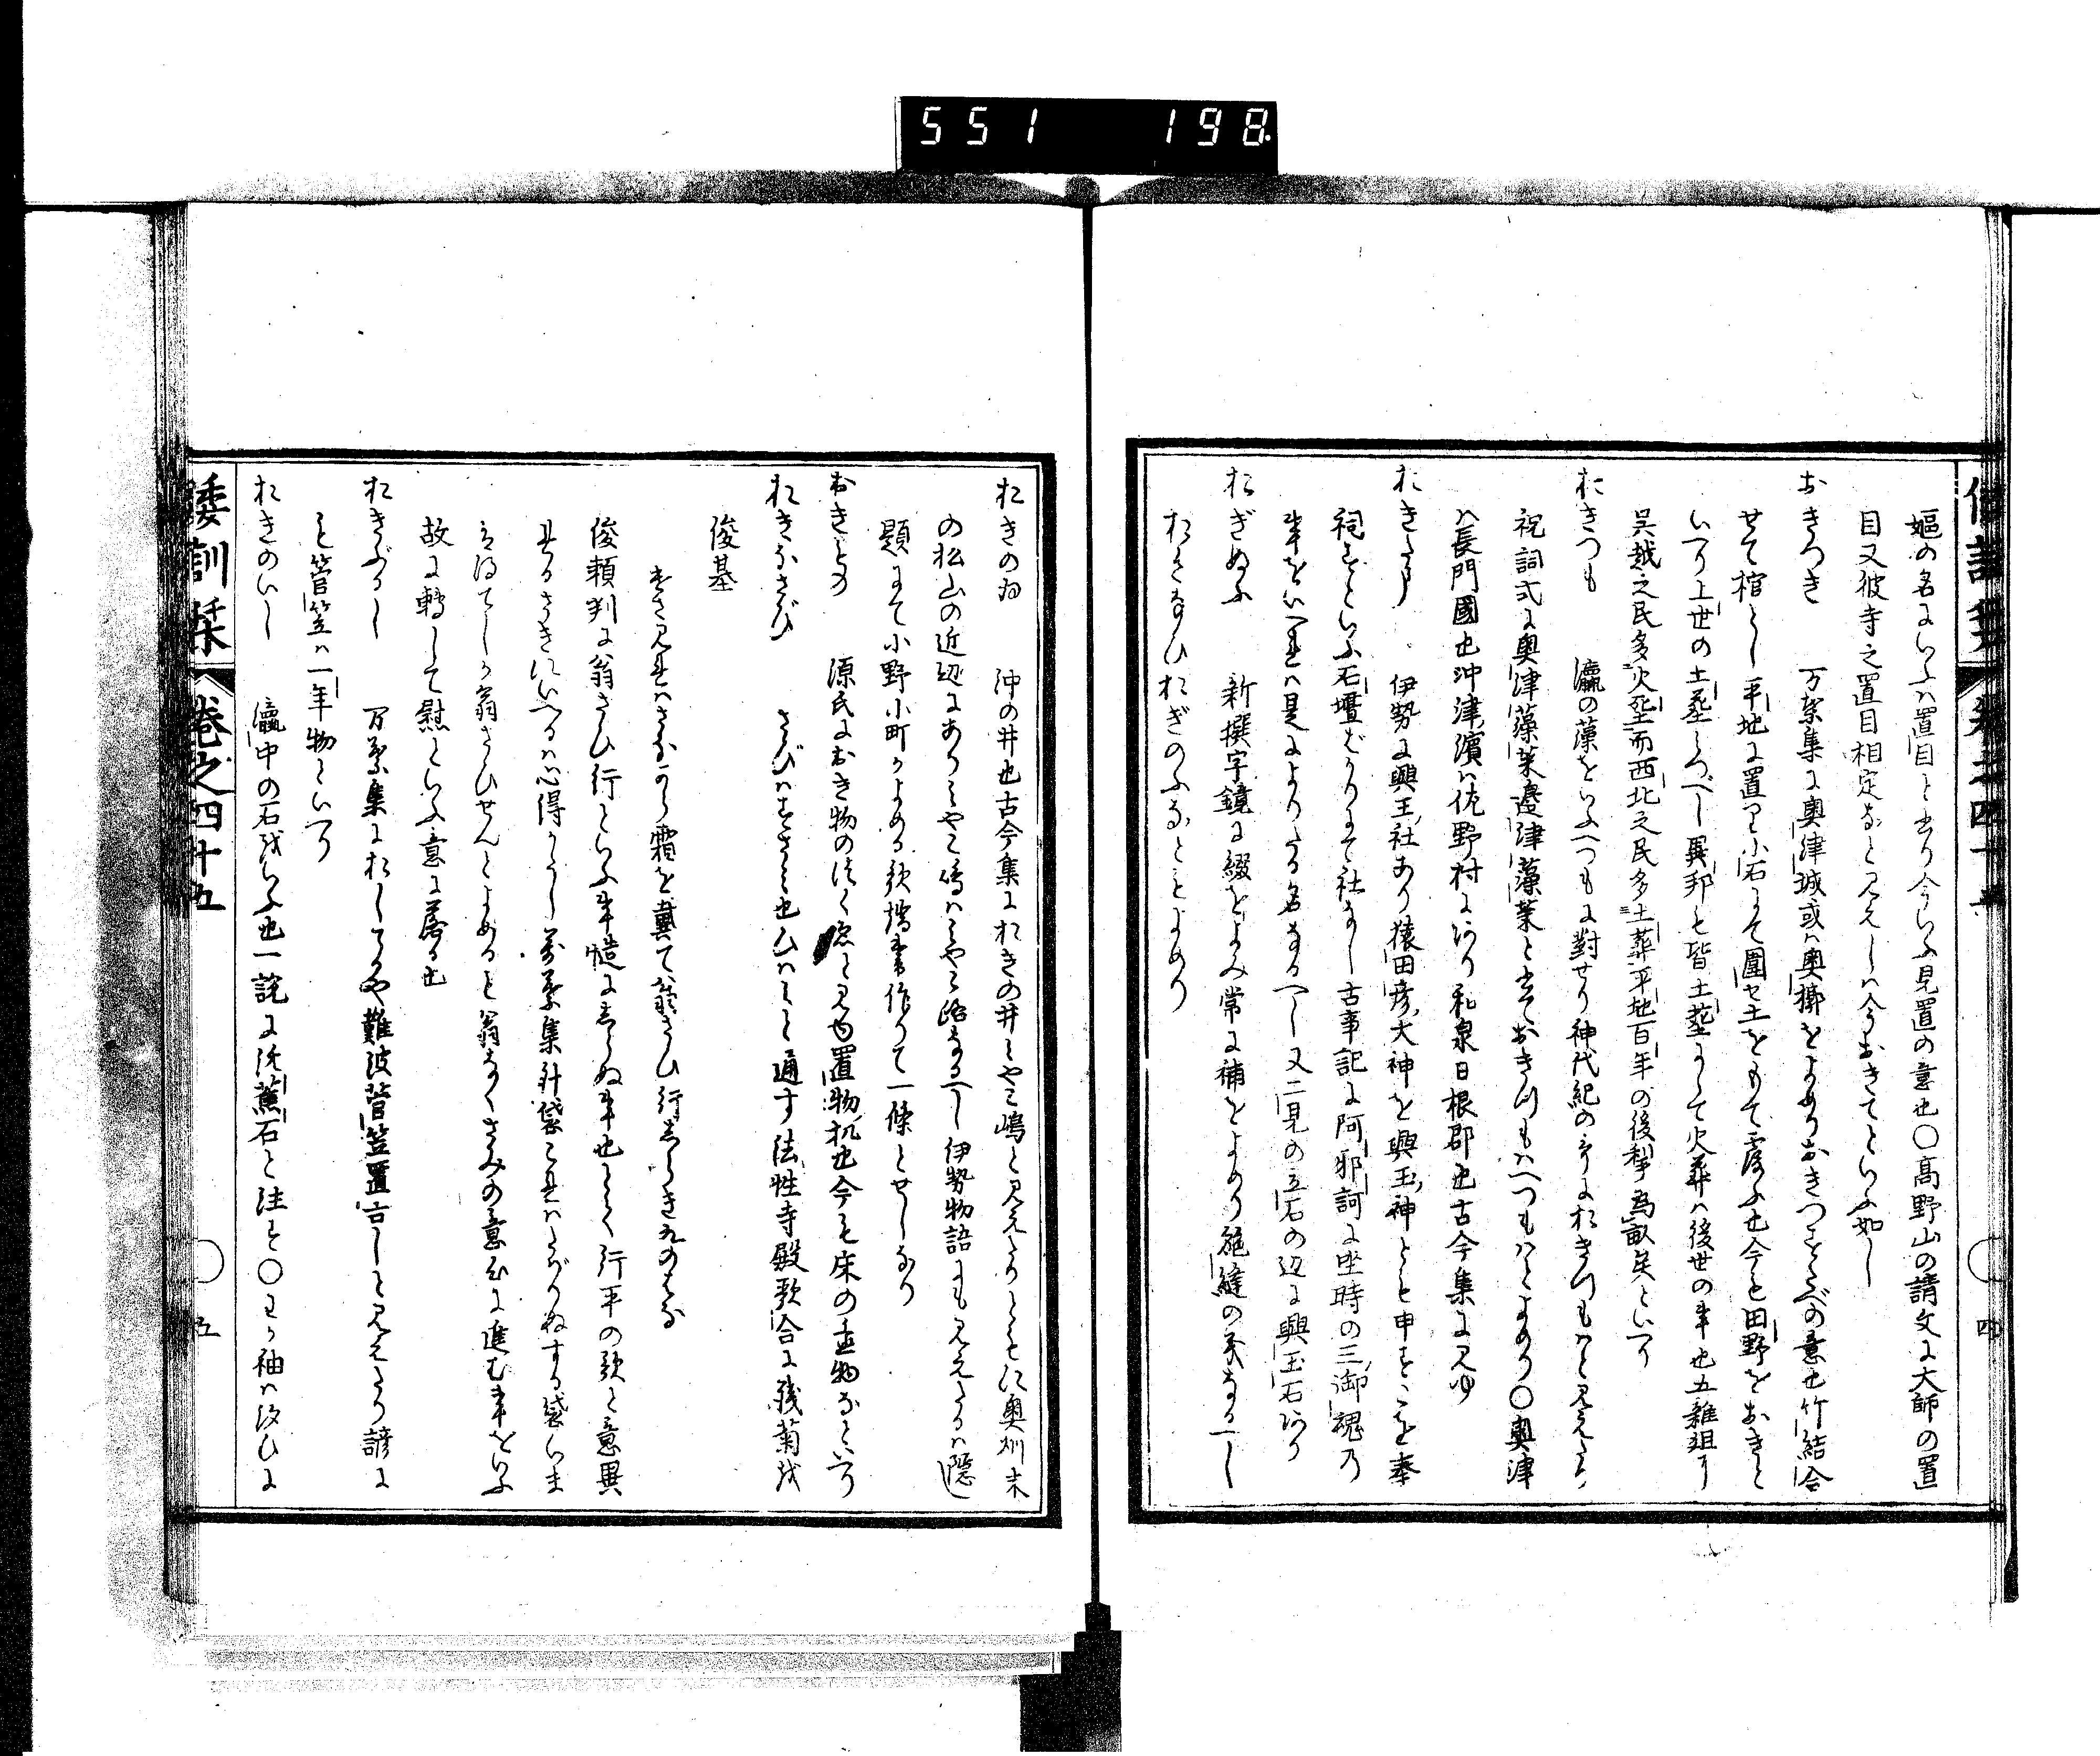 551 198
嫗の名にいふハ置目と書り今いふ見置の意也〇高野山の請文に大師の置
目又彼寺之置目相定など見えしハ今おきてといふ如し
おきつき 万葉集に奥津城或ハ奥槨をよめりおきつハ意也竹結合
せて棺とし平地に置て小石にて圍セ土をもて覆ふ也今も田野をおきと
いへり上世の土葬なるべし異邦も皆土葬にして火葬ハ後世の事也五雜爼に
呉越之民多火葬而西北之民多土葬平地百年の後犂為畝矣といへり
おきつも 瀛の藻をいふへつもに對せり神代紀の哥におきつもハと見えたり
祝詞式に奥津藻菜邊津藻菜と書ておきつもハへつもハとよめり〇奥津
ハ長門國也沖津濱ハ佐野村にあり和泉日根郡也古今集に見ゆ
おきたま 伊勢に興玉社あり猿田彦大神を興玉神とも申すこを奉
祠すといふ石壇ばかりにて社なし古事記に阿邪訶に坐時の三御魂乃
事をいへれハ是によりたる名なるへし又二見の立石の辺に興玉石あり
おぎぬふ 新撰字鏡に綴をよみ常に補をよめり絁縫の義なるへし
おきなひおぎのふなどともよめり
おきのゐ 沖の井也古今集におきの井みやこ嶋と見えたりともに奥州末
の松山の近辺にありみやこ嶋ハみやこ路なるへし伊勢物語にも見えたるハ隠
題にて小野小町かよめる歌を書作りて一條とせしなり
おきもの 源氏におき物のつくゑと見ゆ置物机也今も床の置物なといへり
おきなさび さびハすさみ也ひハみと通す法性寺殿歌合に残菊を
俊基
おさ見れハさなから霜を戴て翁さひ行しらきくのはな
俊頼判に翁さひ行といふ事慥にしらぬ事也もし行平の歌と意異
れるさきにいへるハ心得かたし萬葉集針袋これハたばりぬすり袋いま
はえてしか翁さひせんとよめるも翁なくさみの意より進む事をいふ
故に轉して慰といふ意に落る也
おきふるし 万葉集におしてるや難波菅笠置古しと見えたり諺に
も菅笠ハ一年物といへり
おきのいし 瀛中の石をいふ也一説に沃蕉石と注す〇わか袖ハ汐ひに
倭訓栞 巻之四十五 四
倭訓栞 巻之四十五 五